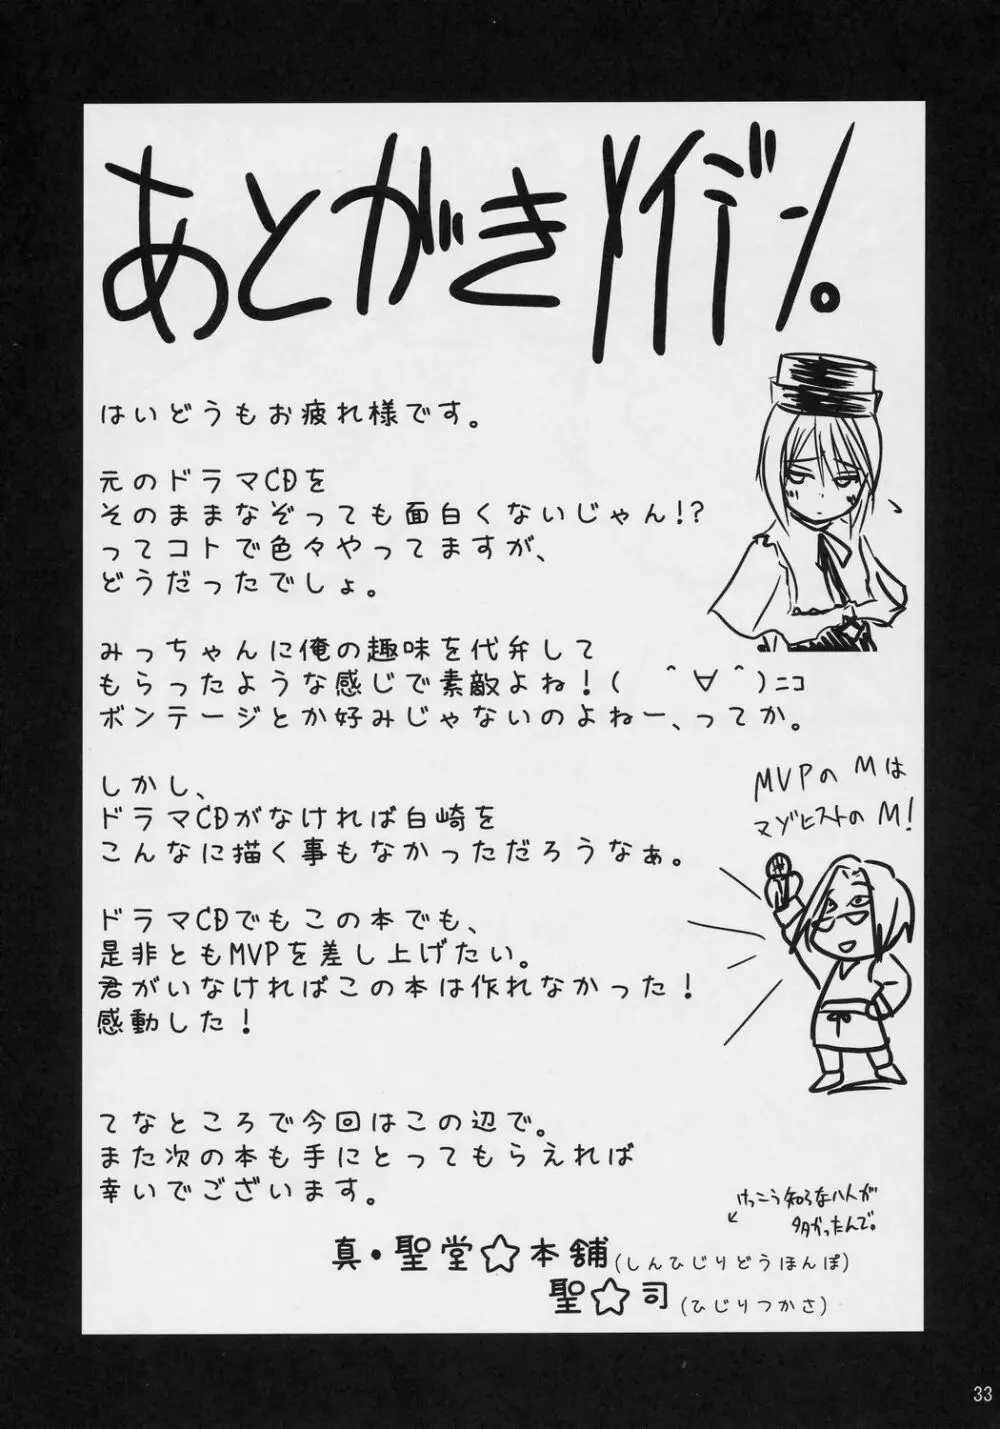 あとがきメイデン。
はいどうもお疲れ様です。
元のドラマCDを
そのままなぞっても面白くないじゃん!?
ってコトで色々やってますが、
どうだったでしょ。
みっちゃんに俺の趣味を代弁して
もらったような感じで素敵よね!( ＾∀＾)ﾆｺ
ボンテージとか好みじゃないのよねー、ってか。
しかし、
ドラマCDがなければ白崎を
こんなに描く事もなかっただろうなぁ。
ドラマCDでもこの本でも、
是非ともMVPを差し上げたい。
君がいなければこの本は作れなかった!
感動した!
MVPのMは
マゾヒストのM!
てなところで今回はこの辺で。
また次の本も手にとってもらえれば
幸いでございます。
けっこう知らない人が
多かったんで。
真・聖堂☆本舗(しんひじりどうほんぽ)
聖☆司(ひじりつかさ)
33